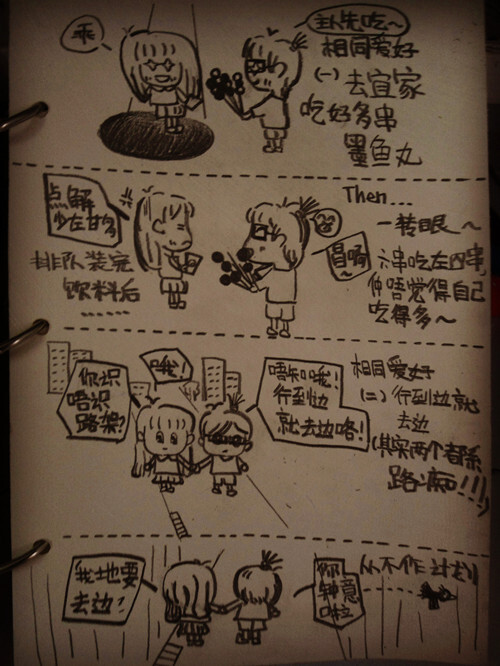 乖
先吃~
相同爱好
(一)去宜家
吃好多串
墨鱼丸
点解
少左多
排队装完
饮料后
......
Then...
一转眼~
啊~
串吃左四串,
仲唔觉得自己
吃得多~
你识
唔识
路架?
哦!
唔知哦!
行到边
就去边咯!
相同爱好
(二)行到边就
去边
(其实两个都系
路痴!!!)
我地要
去边?
你
钟意
啦
从不作计划